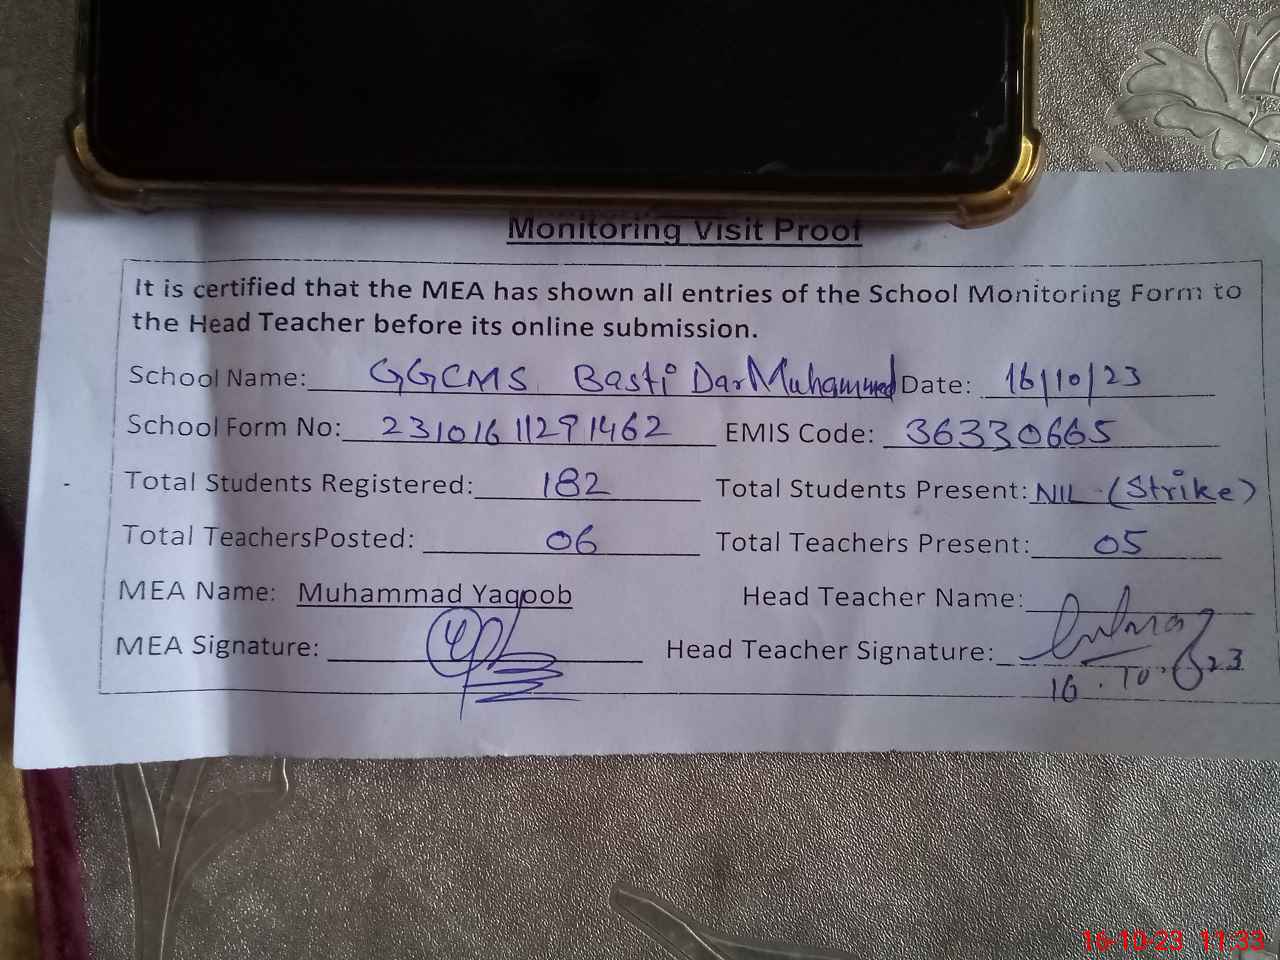 Monitoring Visit Proof
It is certified that the MEA has shown all entries of the School Monitoring Form to
the Head Teacher before its online submission.
School Name: GGCMS Basti Dar Muhammad Date: 16/10/23
School Form No: 23101611291462 EMIS Code: 36330665
Total Students Registered: 182 Total Students Present: NIL (Strike)
Total TeachersPosted: 06 Total Teachers Present: 05
MEA Name: Muhammad Yaqoob Head Teacher Name:
MEA Signature: Head Teacher Signature:
16.10.23
16-10-23 11:33